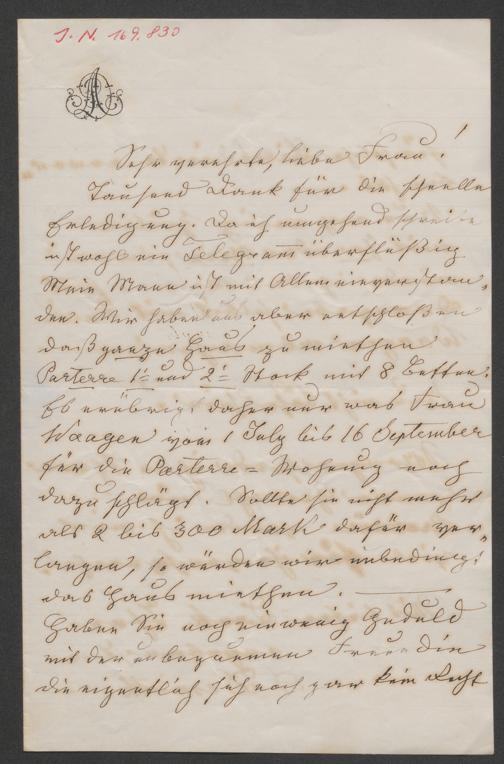 J. N. 169.830
Sehr verehrte, liebe Frau!
Tausend Dank für die schnelle
Erledigung. Da ich umgehend schreibe
ist wohl ein Telegramm überflüßig
Mein Mann ist mit Allem einverstan„
den. Wir haben uns aber entschloßen
daß ganze Haus zu miethen
Parterre 1. und 2. Stock mit 8 Betten.
Es erübrigt daher nur was Frau
Waagen vom 1 July bis 16 September
für die Parterre=Wohnung noch
dazu schlägt. Sollte sie nicht mehr
als 2 bis 300 Mark dafür ver„
langen, so würden wir unbedingt
das Haus miethen. —
Haben Sie noch ein wenig Geduld
mit der unbequemen Freundin
die eigentlich sich noch gar kein Recht